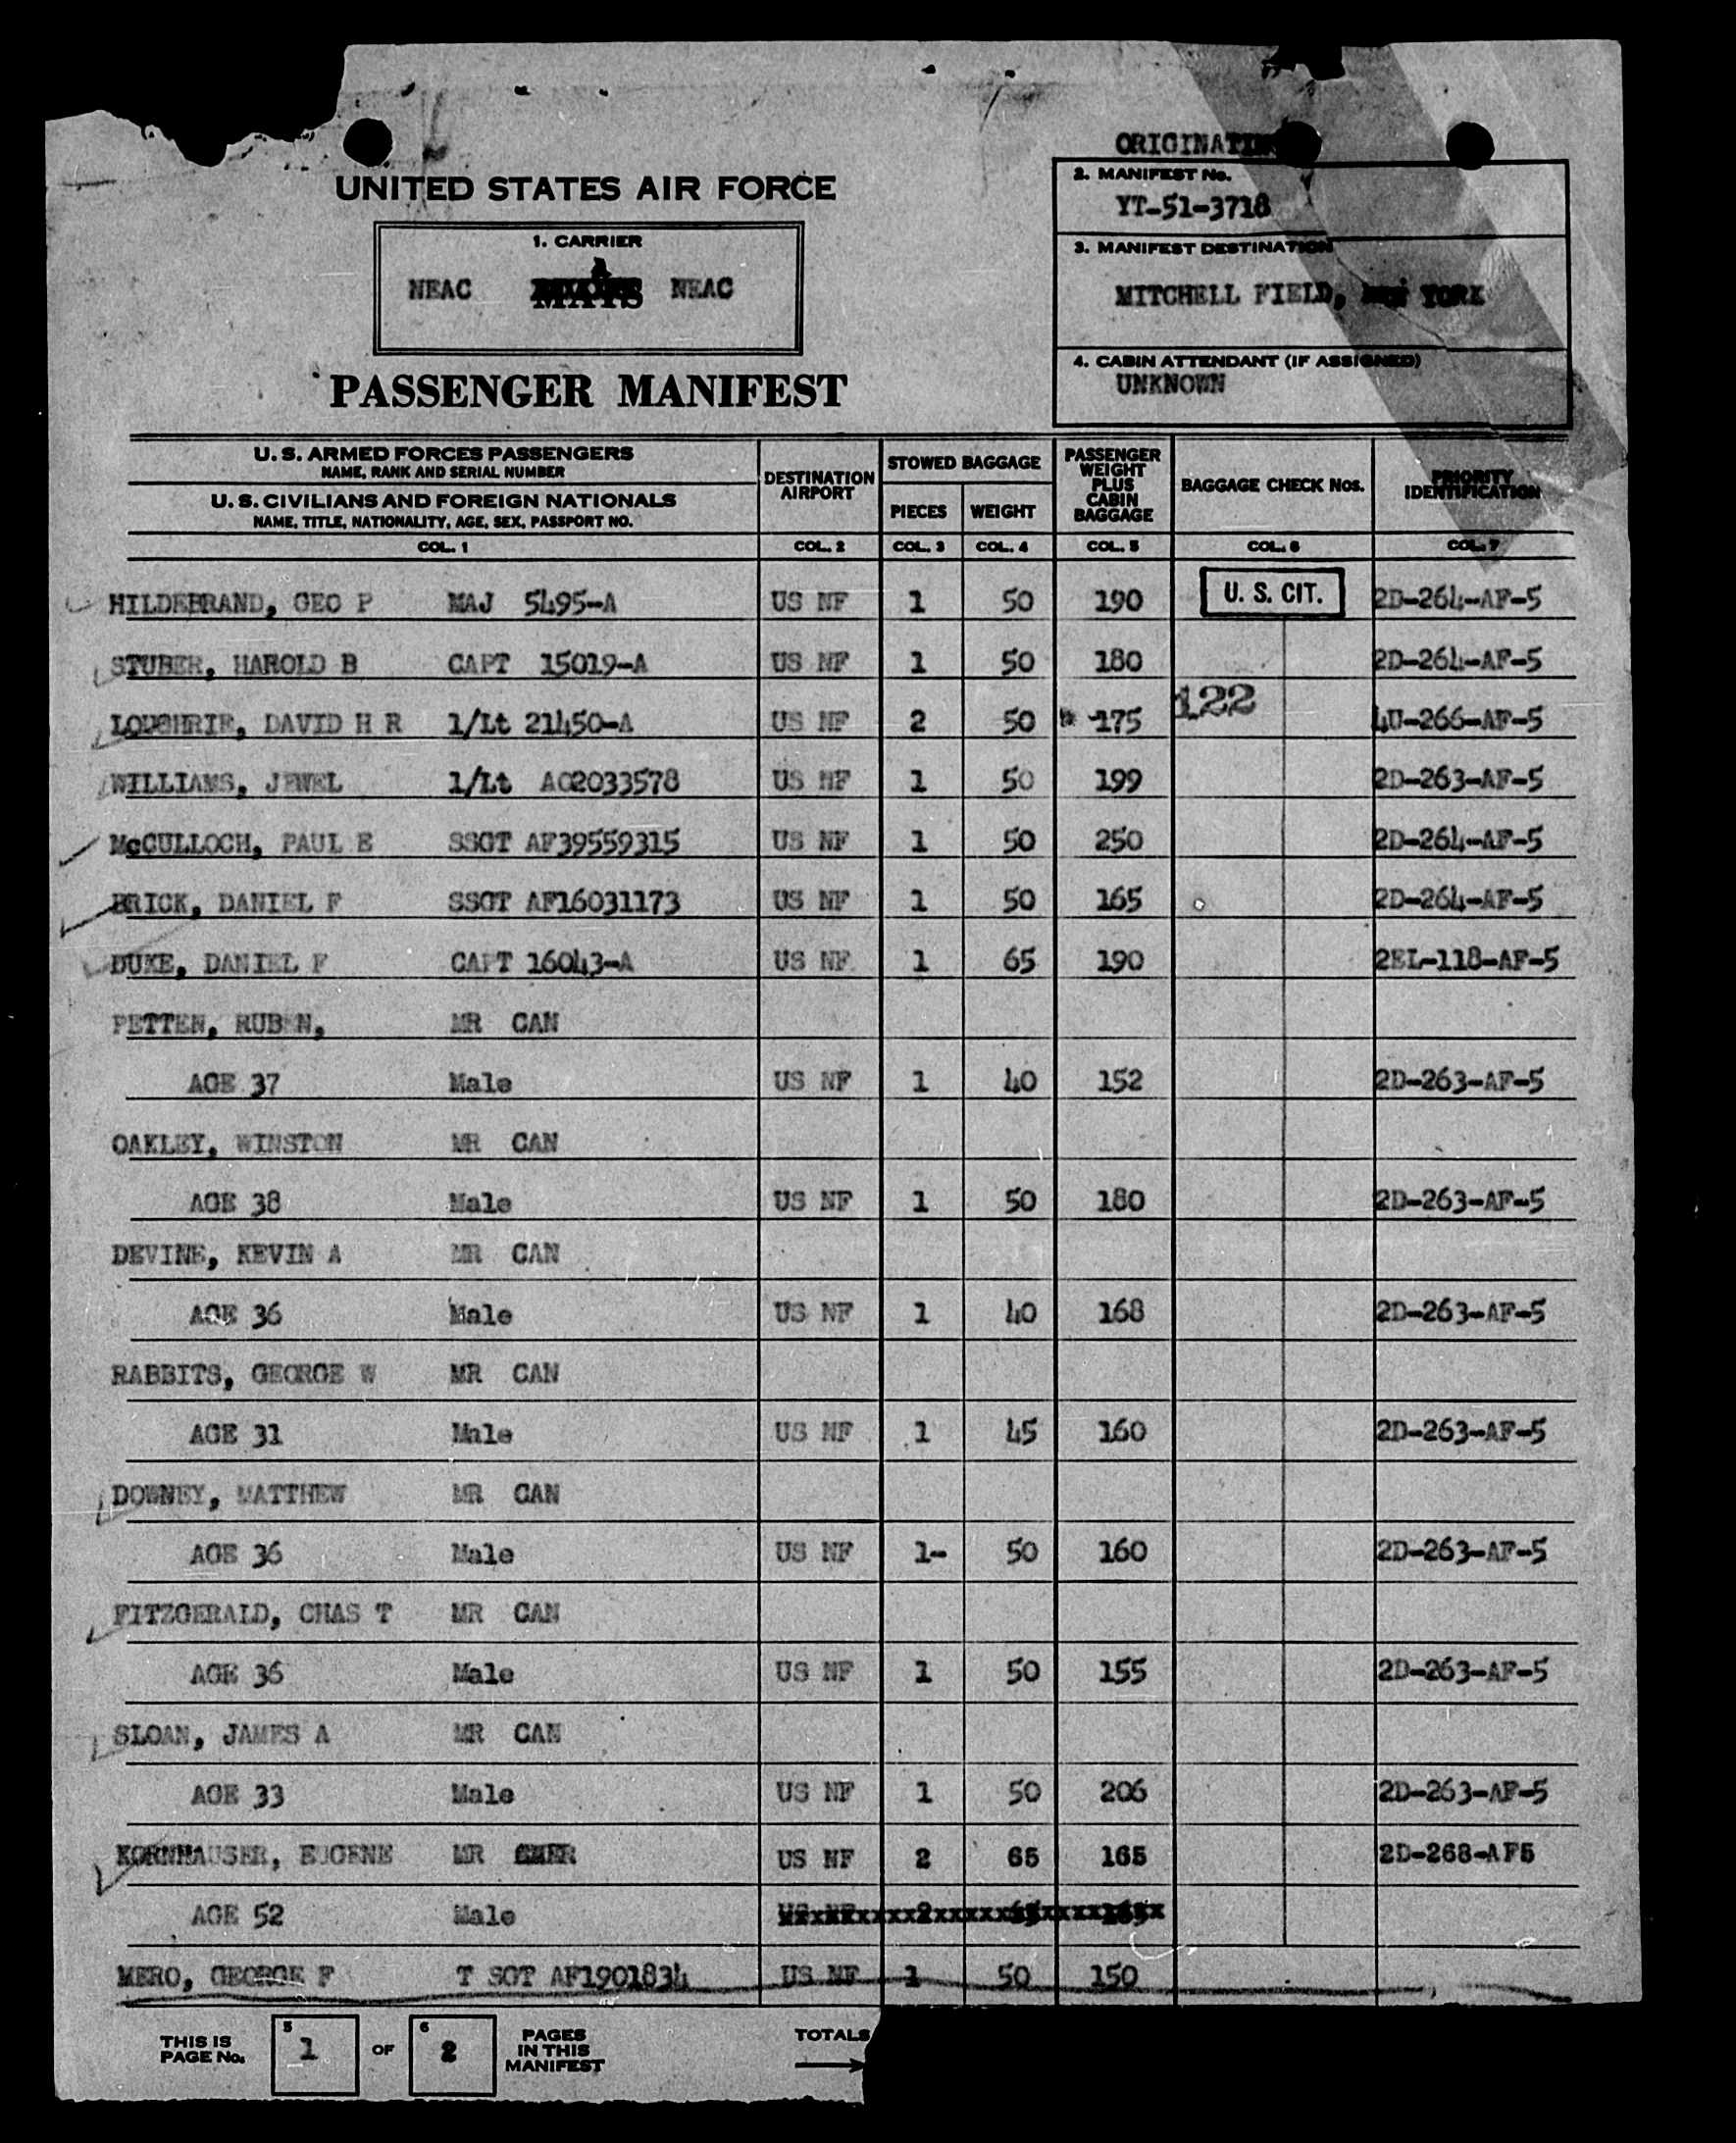 UNITED STATES AIR FORCE
1. CARRIER
NEAC MATS NEAC
PASSENGER MANIFEST
2. MANIFEST No.
YT-51-3718
3. MANIFEST DESTINATION
MITCHELL FIELD, YORK
4. CABIN ATTENDANT (IF ASSIGNED)
UNKNOWN
U. S. ARMED FORCES PASSENGERS
NAME, RANK AND SERIAL NUMBER
U. S. CIVILIANS AND FOREIGN NATIONALS
NAME, TITLE, NATIONALITY, AGE, SEX, PASSPORT NO.
DESTINATION AIRPORT
STOWED BAGGAGE
PIECES WEIGHT
PASSENGER WEIGHT PLUS CABIN BAGGAGE
BAGGAGE CHECK Nos.
PRIORITY IDENTIFICATION
COL. 1 COL. 2 COL. 3 COL. 4 COL. 5 COL. 6 COL. 7
HILDEBRAND, GEO P MAJ 5495-A US NF 1 50 190 U. S. CIT. 2D-264-AF-5
STUBER, HAROLD B CAPT 15019-A US NF 1 50 180 2D-264-AF-5
LOUGHRIE, DAVID H R 1/Lt 21450-A US NF 2 50 175 122 4U-266-AF-5
WILLIAMS, JEWEL 1/Lt AO2033578 US NF 1 50 199 2D-263-AF-5
McCULLOCH, PAUL E SSGT AF39559315 US NF 1 50 250 2D-264-AF-5
BRICK, DANIEL F SSGT AF16031173 US NF 1 50 165 2D-264-AF-5
DUKE, DANIEL F CAPT 16043-A US NF 1 65 190 2EL-118-AF-5
PETTEN, RUBEN, MR CAN
AGE 37 Male US NF 1 40 152 2D-263-AF-5
OAKLEY, WINSTON MR CAN
AGE 38 Male US NF 1 50 180 2D-263-AF-5
DEVINE, KEVIN A MR CAN
AGE 36 Male US NF 1 40 168 2D-263-AF-5
RABBITS, GEORGE W MR CAN
AGE 31 Male US NF 1 45 160 2D-263-AF-5
DOWNEY, MATTHEW MR CAN
AGE 36 Male US NF 1- 50 160 2D-263-AF-5
FITZGERALD, CHAS T MR CAN
AGE 36 Male US NF 1 50 155 2D-263-AF-5
SLOAN, JAMES A MR CAN
AGE 33 Male US NF 1 50 206 2D-263-AF-5
KORNHAUSER, EUGENE MR US NF 2 65 165 2D-268-AF5
AGE 52 Male
MERO, GEORGE F T SGT AF1901834 US NF 1 50 150
THIS IS PAGE No. 5 1 OF 6 2 PAGES IN THIS MANIFEST TOTALS